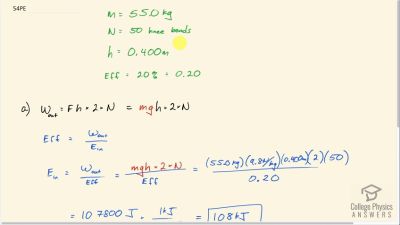 54PE
m = 55.0 kg
N = 50 knee bends
h = 0.400 m
Eff = 20% = 0.20
a) W_out = F h · 2 · N = mgh · 2 · N
Eff = W_out / E_in
E_in = W_out / Eff = mgh · 2 · N / Eff = (55.0 kg)(9.8 N/kg)(0.400 m)(2)(50) / 0.20
= 107800 J · 1 kJ = 108 kJ
College Physics
ANSWERS